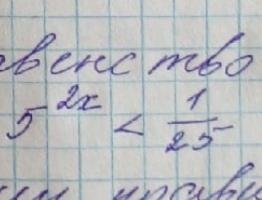 венство
5^{2x} < \frac{1}{25}